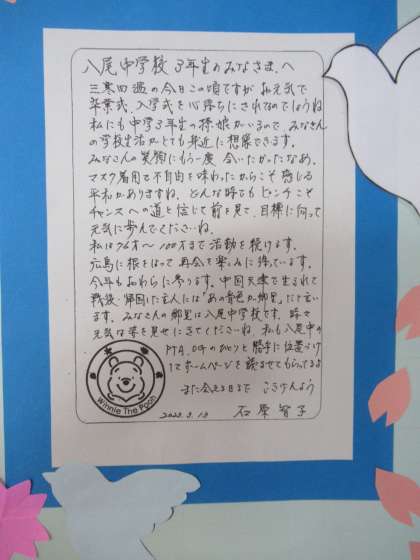 八尾中学校 3年生のみなさまへ
三寒四温の今日この頃ですがお元気で
卒業式、入学式を心待ちにされてるのでしょうね
私にも中学3年生の孫娘がいるので みなさん
の学校生活がとても身近に想像できます。
みなさんの笑顔にもう一度 会いたかったなあ。
マスク着用で不自由を味わったからこそ感じる
平和がありますね。どんな時でもピンチこそ
チャンスへの道と信じて前を見て、目標に向って
元気に歩んでくださいね。
私は76才〜100才まで活動を続けます。
広島に根をはって 再会を楽しみに待っています。
今年もおわらに参ります。中国天津で生まれて
戦後、帰国した主人には"あの音色が郷里"だと言い
ます。みなさんの郷里は八尾中学校です。時々
元気な姿を見せにきてくださいね。私も八尾中の
PTA、OBのひとりと勝手に位置づけ
してホームページを読ませてもらってるよ
また会える日まで ごきげんよう
2023.3.13 石原智子
Winnie The Pooh